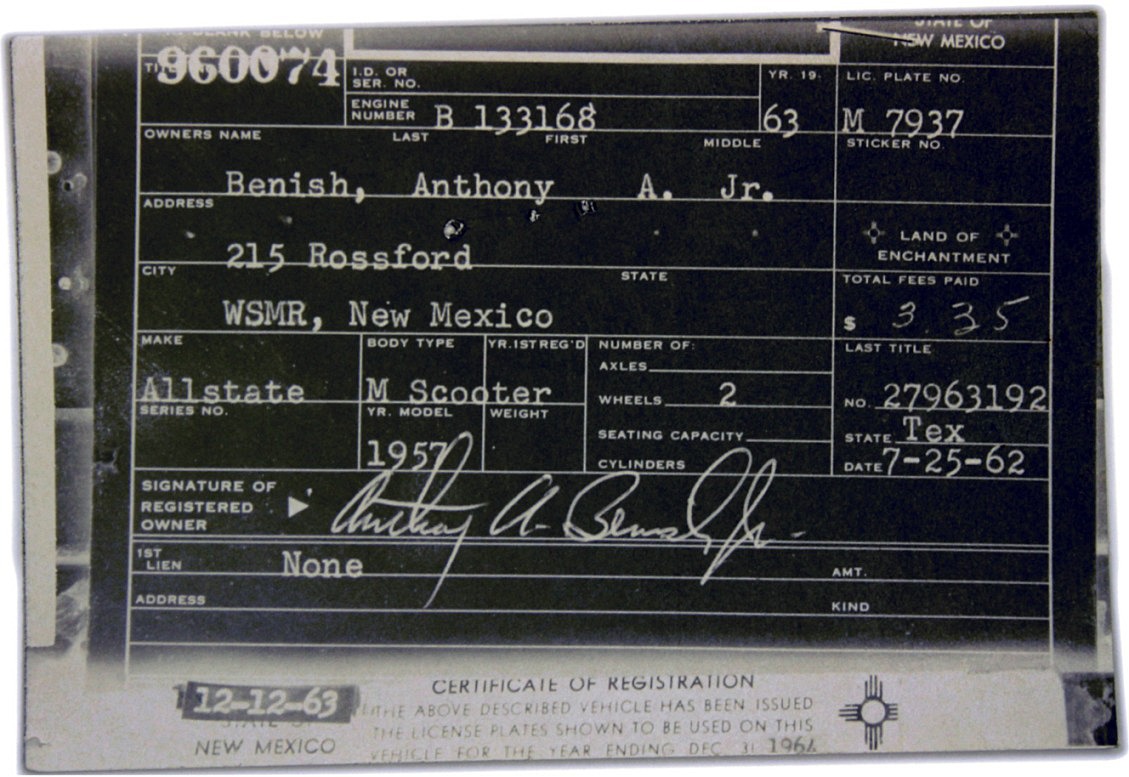 BLANK BELOW
STATE OF
NEW MEXICO
960074
I.D. OR
SER. NO.
YR. 19
LIC. PLATE NO.
ENGINE
NUMBER B 133168
63
M 7937
OWNERS NAME LAST FIRST MIDDLE
STICKER NO.
Benish, Anthony A. Jr.
ADDRESS
215 Rossford
LAND OF
ENCHANTMENT
CITY STATE
TOTAL FEES PAID
WSMR, New Mexico
$ 3.35
MAKE BODY TYPE YR.1ST REG'D NUMBER OF:
LAST TITLE
AXLES
Allstate M Scooter
WHEELS 2
NO. 27963192
SERIES NO. YR. MODEL WEIGHT
STATE Tex
SEATING CAPACITY
1957
CYLINDERS
DATE 7-25-62
SIGNATURE OF
REGISTERED
OWNER
Anthony A. Benish, Jr.
1ST
LIEN None
AMT.
ADDRESS
KIND
CERTIFICATE OF REGISTRATION
12-12-63
STATE OF
NEW MEXICO
THE ABOVE DESCRIBED VEHICLE HAS BEEN ISSUED
THE LICENSE PLATES SHOWN TO BE USED ON THIS
VEHICLE FOR THE YEAR ENDING DEC. 31 1964